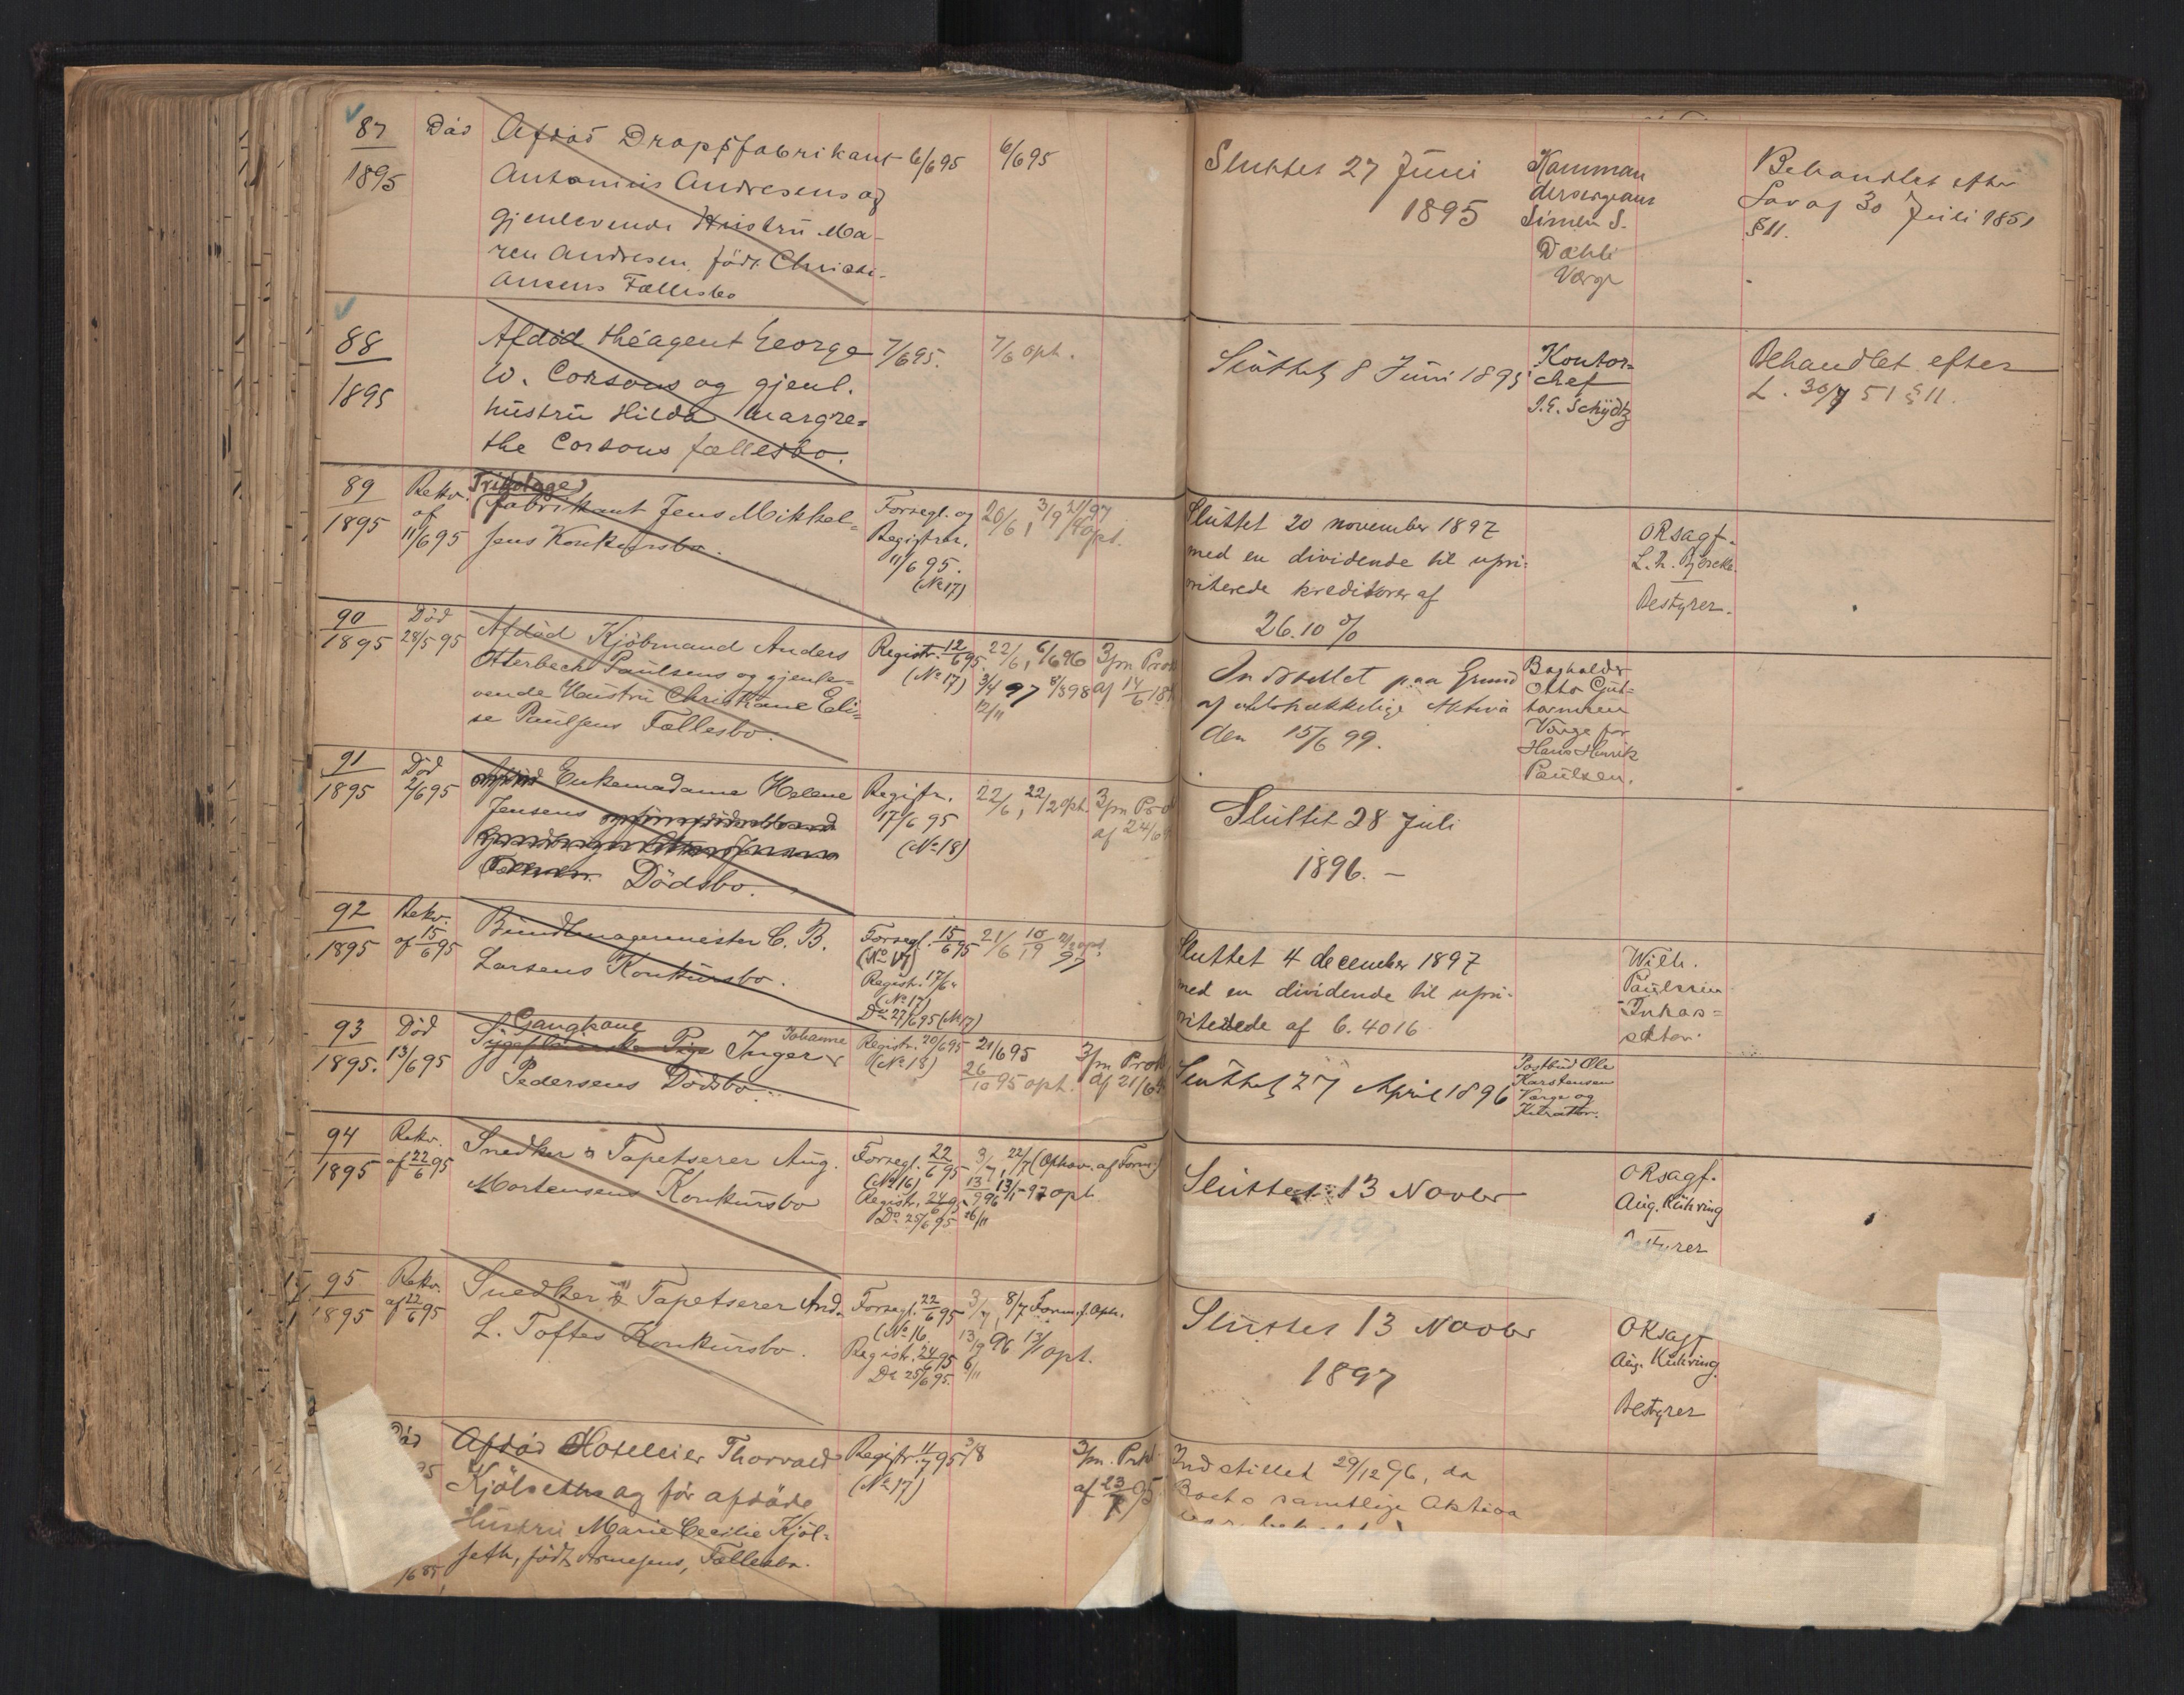 87
1895
Död
Afdöd Dropsfabrikant
Antonius Andresens og
gjenlevende Hustru Ma-
ren Andresen, födt Christi-
ansens Fællesbo
6/6 95
6/6 95
Sluttet 27 Juni
1895
Komman
dersergeant
Simen S.
Dæhli
Værge
Behandlet efter
Lov af 30 Juli 1851
§ 11.
88
1895
Afdöd Théagent George
W. Corsons og gjenl.
hustru Hilda Margre=
the Corsons fællesbo.
7/6 95.
7/6 opt.
Sluttet 8 Juni 1895
Kontor=
chef
J.E. Schydtz
Behandlet efter
L. 30/7 51 § 11.
89
1895
Rekv.
af
11/6 95
Trikotage
fabrikant Jens Mikkel=
sens Konkursbo.
Forsegl. og
Registr.
11/6 95.
(No 17)
26/6, 3/9
opt.
Sluttet 20 november 1897
med en dividende til upri-
oriterede kreditorer af
26.10 %
ORsagf.
L. N. Bjercke
Bestyrer.
90
1895
Död
28/5 95
Afdöd Kjöbmand Anders
Otterbech Paulsens og gjenle=
vende Hustru Christiane Eli=
se Paulsens Fællesbo.
Registr. 12/6 95.
(No 17)
22/6, 6/6 96
3/4 97 8/3 98
12/11
3m Prok
af 14/6 18
Indstillet paa Grund
af utilstrækkelige Aktiva
den 15/6 99.
Bogholder
Otto Gut-
tormsen
Værge for
Hans Henrik
Paulsen.
91
1895
Död
2/6 95
Afdöd Enkemadame Helene
Jensens
Dödsbo.
Registr.
17/6 95
(No 18)
22/6, 22/2 opt.
3m Prok
af 24/6
Sluttet 28 Juli
1896. -
92
1895
Rekv.
af 15/6 95
Bundtmagermester C. B.
Larsens Konkursbo.
Forsegl. 15/6 95
(No 17)
Registr. 17/6
(No 17)
Do 27/6 95 (No 17)
21/6 10/9
97
Sluttet 4 december 1897
med en dividende til upri-
oriterede af 6.4016
Wilh.
Paulssen
Inkas=
sator.
93
1895.
Död
13/6 95
Gangkone
Sygepleierske Pige Inger Johanne
Pedersens Dödsbo.
Registr. 20/6 95
(No 18)
21/6 95
26/10 95 opt.
3m Prok
af 21/6
Sluttet 27 April 1896
Postbud Ole
Karstensen
Værge og
Kurator.
94
1895
Rekv.
af 22/6 95
Snedker & Tapetserer Aug.
Mortensens Konkursbo
Forsegl. 22/6 95
(No 16)
Registr. 24/6 95
Do 25/6 95
3/7, 22/7 (Ophav. af Form.)
13/9 96 13/1-97 opt.
26/11
Sluttet 13 Novbr
ORsagf.
Aug. Kühring
Bestyrer
95
1895
Rekv.
af 22/6 95
Snedker & Tapetserer And.
L. Toftes Konkursbo.
Forsegl. 22/6 95
(No 16
Registr. 24/6 95
Do 25/6 95.
3/7, 8/7 Form. f. Oph.
13/9 96 13/1 opt.
6/11
Sluttet 13 Novbr
1897
ORsagf
Aug. Kühring.
Bestyrer
Död
95
Afdöd Hotelleier Thorvald
Kjölseths og för afdöde
Hustru Marie Cecilie Kjöl=
seth, födt Arnesens, Fællesbo.
Registr. 11/7 95
(No 17)
3/8
3m. Prok.
af 23/7 95
Indstillet 29/12 96, da
Boets samtlige Aktiva